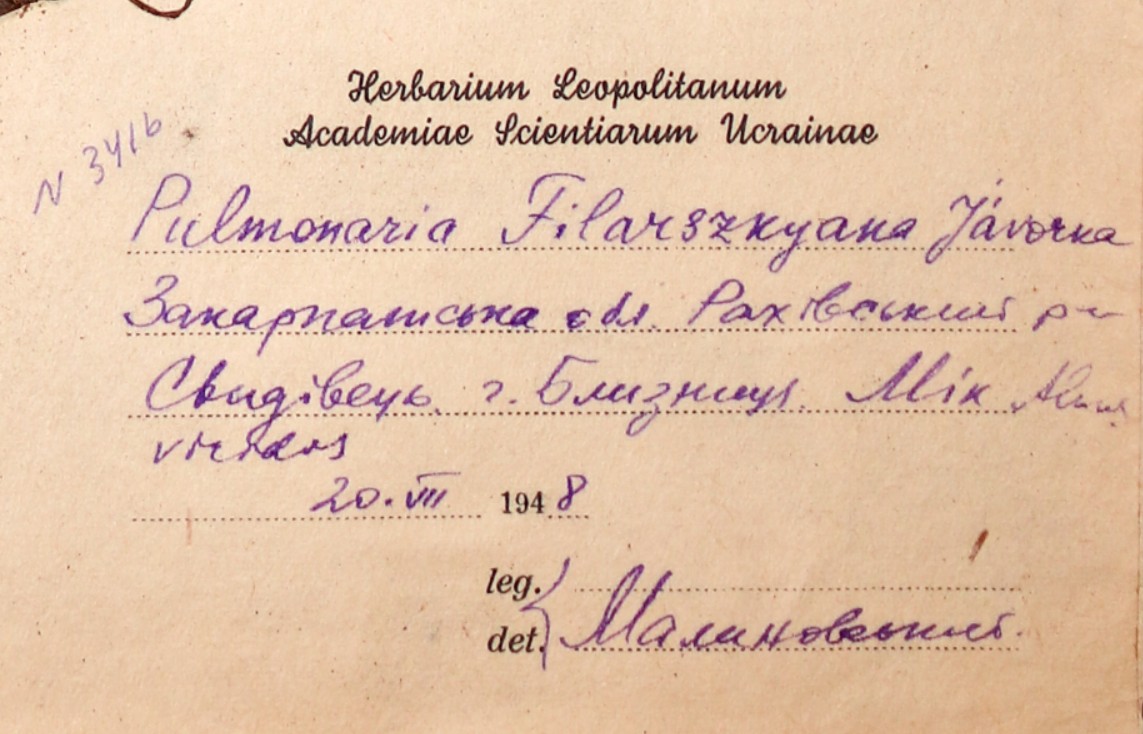 Herbarium Leopolitanum
Academiae Scientiarum Ucrainae
N 3416
Pulmonaria Filarszkyana Jávorka
Закарпатська обл. Рахівський р-н
Свидівець. г. Близниця. Між Alnus
viridis
20. VII 1948
leg.
det. Малиновський.